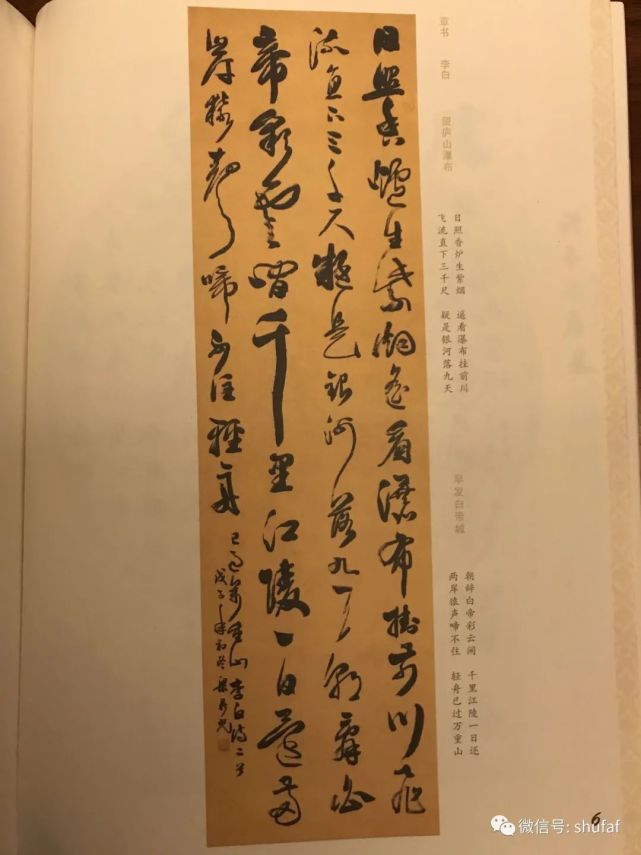 日照香爐生紫烟遥看瀑布掛前川飛
流直下三千尺疑是銀河落九天朝辭白
帝彩雲間千里江陵一日還兩
岸猿聲啼不住輕舟
已過萬重山 李白詩二首
戊子年初冬
草书 李白 望庐山瀑布
日照香炉生紫烟 遥看瀑布挂前川
飞流直下三千尺 疑是银河落九天
早发白帝城
朝辞白帝彩云间 千里江陵一日还
两岸猿声啼不住 轻舟已过万重山
6
微信号: shufaf